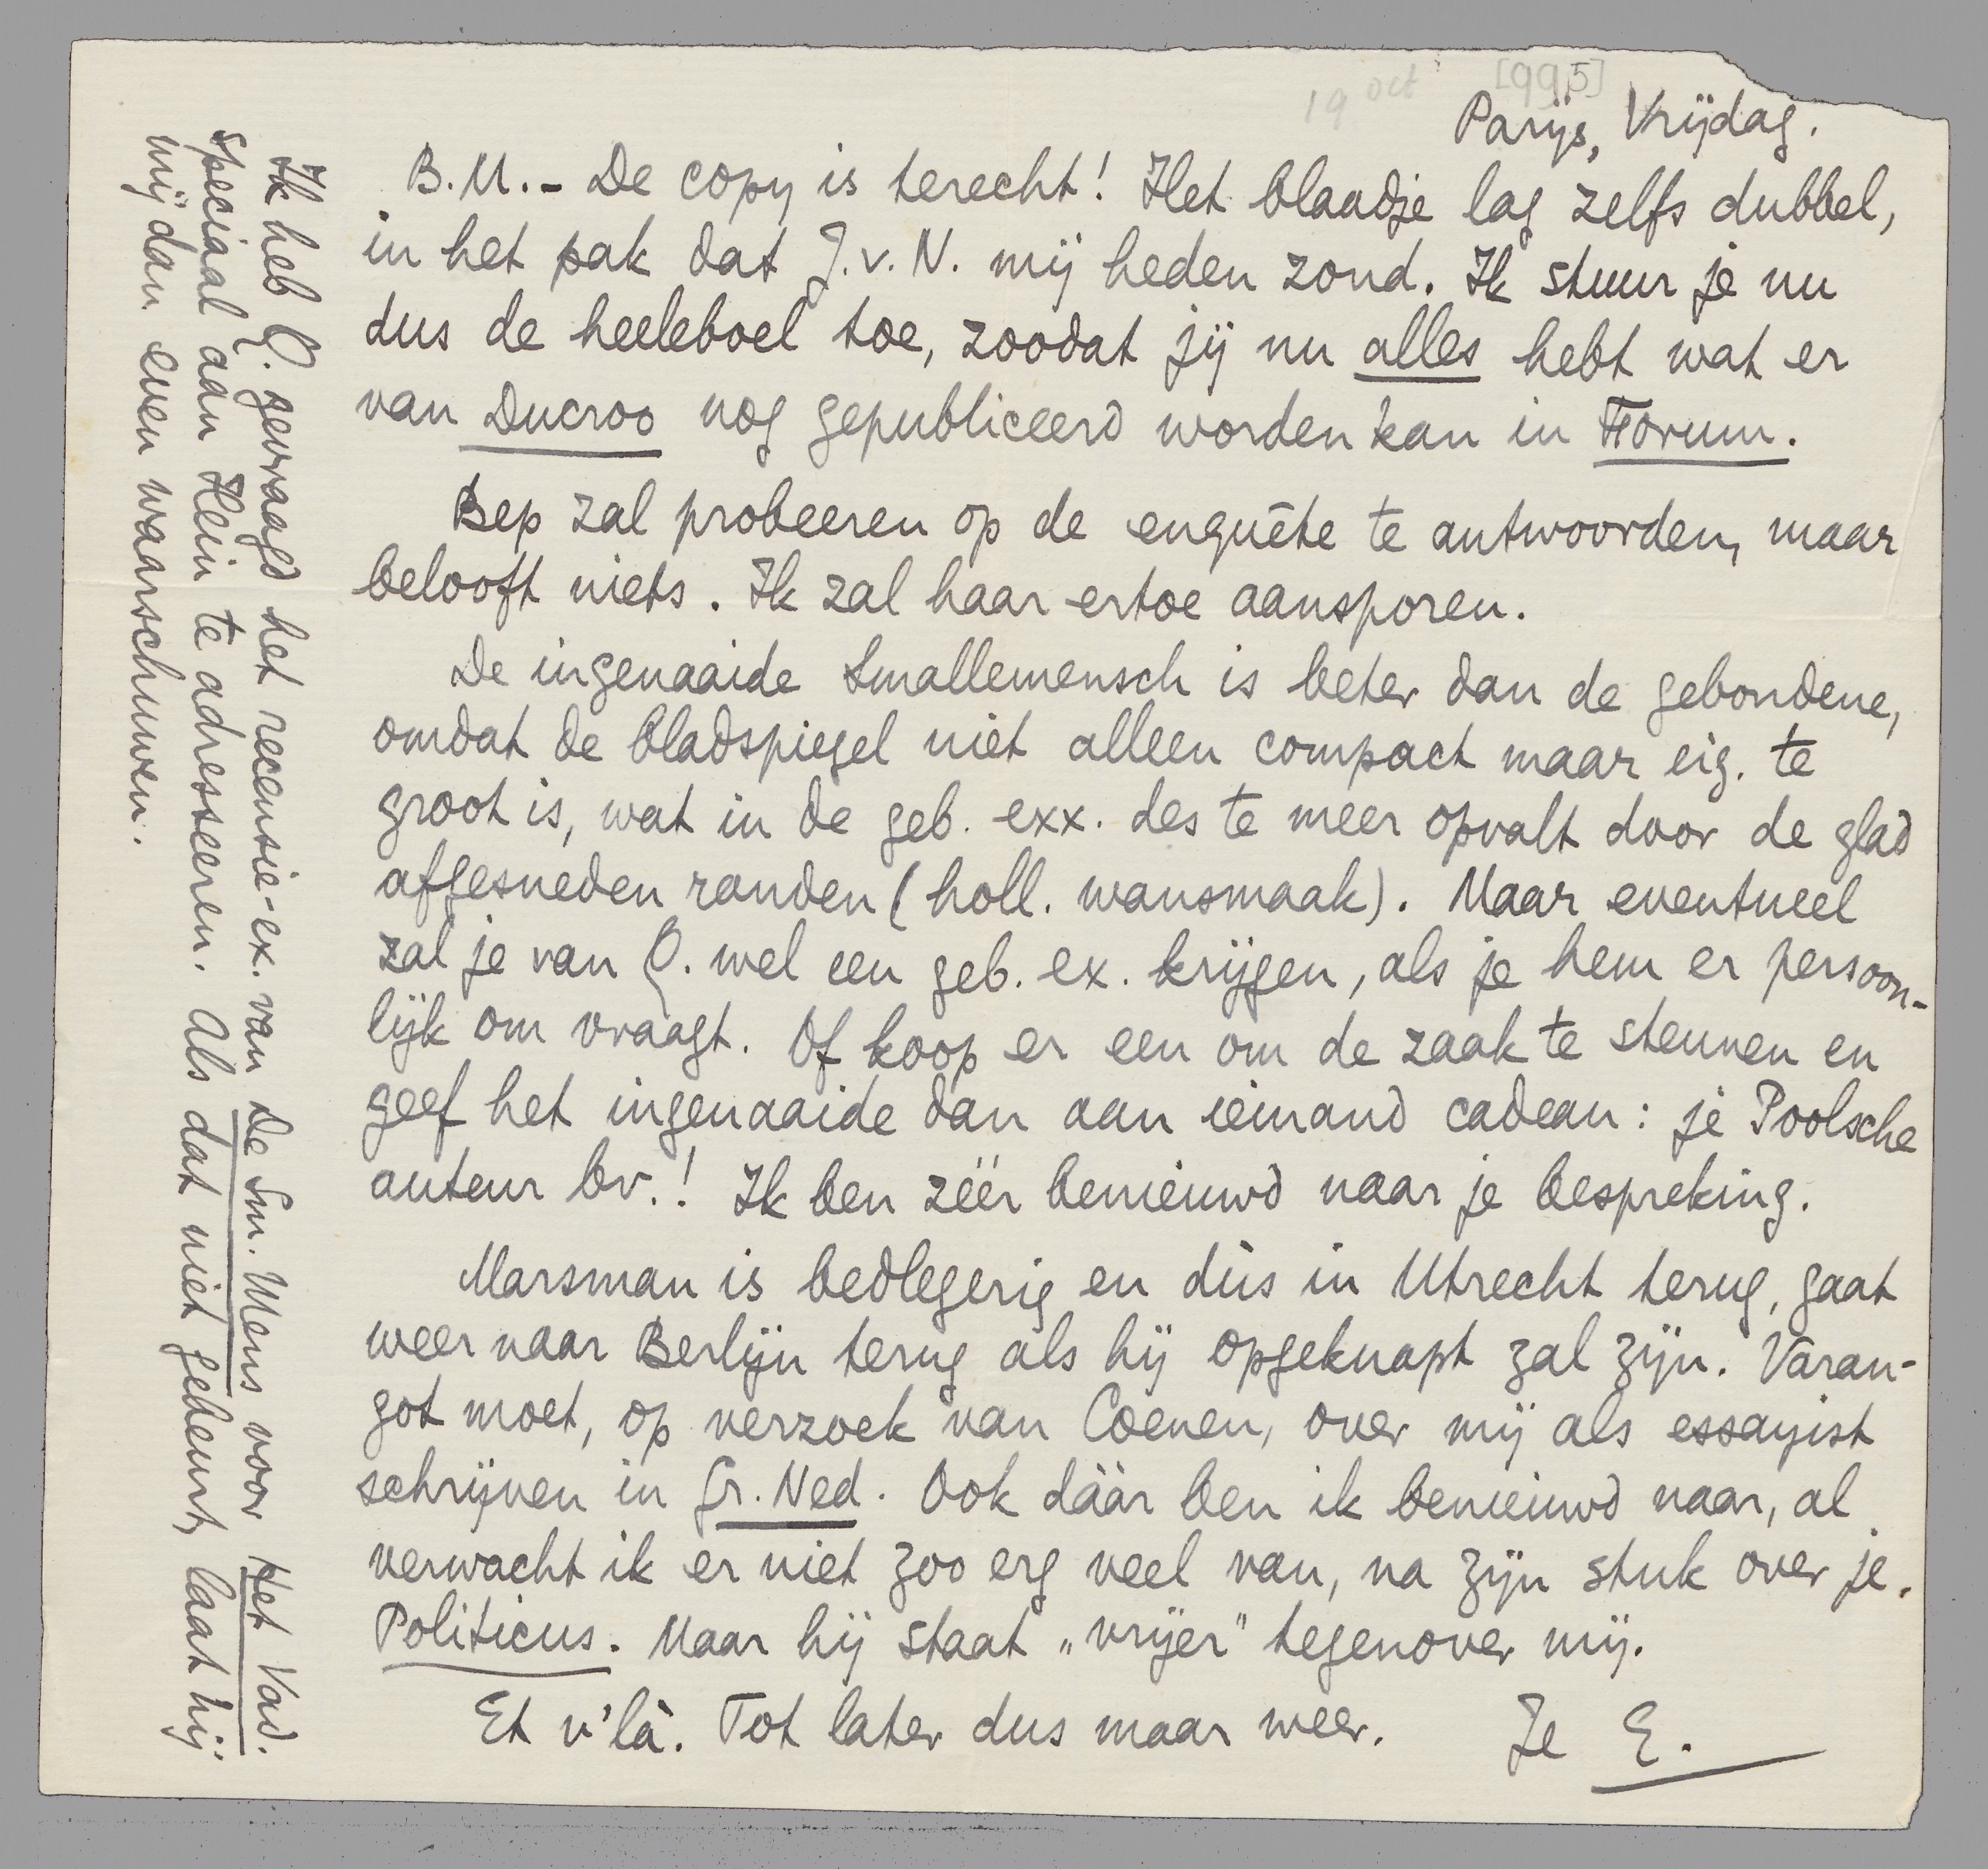 19 oct [995]
Parijs, Vrijdag.
B.M. - De copy is terecht! Het blaadje lag zelfs dubbel,
in het pak dat J.v.N. mij heden zond. Ik stuur je nu
dus de heeleboel toe, zoodat jij nu alles hebt wat er
van Ducroo nog gepubliceerd worden kan in Forum.
Bep zal probeeren op de enquête te antwoorden, maar
belooft niets. Ik zal haar ertoe aansporen.
De ingenaaide Smallemensch is beter dan de gebondene,
omdat de bladspiegel niet alleen compact maar eig. te
groot is, wat in de geb. exx. des te meer opvalt door de glad
afgesneden randen (holl. wansmaak). Maar eventueel
zal je van Q. wel een geb. ex. krijgen, als je hem er persoon-
lijk om vraagt. Of koop er een om de zaak te steunen en
geef het ingenaaide dan aan iemand cadeau: je Poolsche
auteur bv.! Ik ben zéér benieuwd naar je bespreking.
Marsman is bedlegerig en dus in Utrecht terug, gaat
weer naar Berlijn terug als hij opgeknapt zal zijn. Varan-
got moet, op verzoek van Coenen, over mij als essayist
schrijven in Gr. Ned. Ook dààr ben ik benieuwd naar, al
verwacht ik er niet zoo erg veel van, na zijn stuk over je
Politicus. Maar hij staat „vrijer" tegenover mij.
Et v'là. Tot later dus maar weer. Je E.
Ik heb Q. gevraagd het recensie-ex. van De Sm. Mens voor Het Vad.
speciaal aan Hein te adresseeren. Als dat niet gebeurt, laat hij
mij dan even waarschuwen.